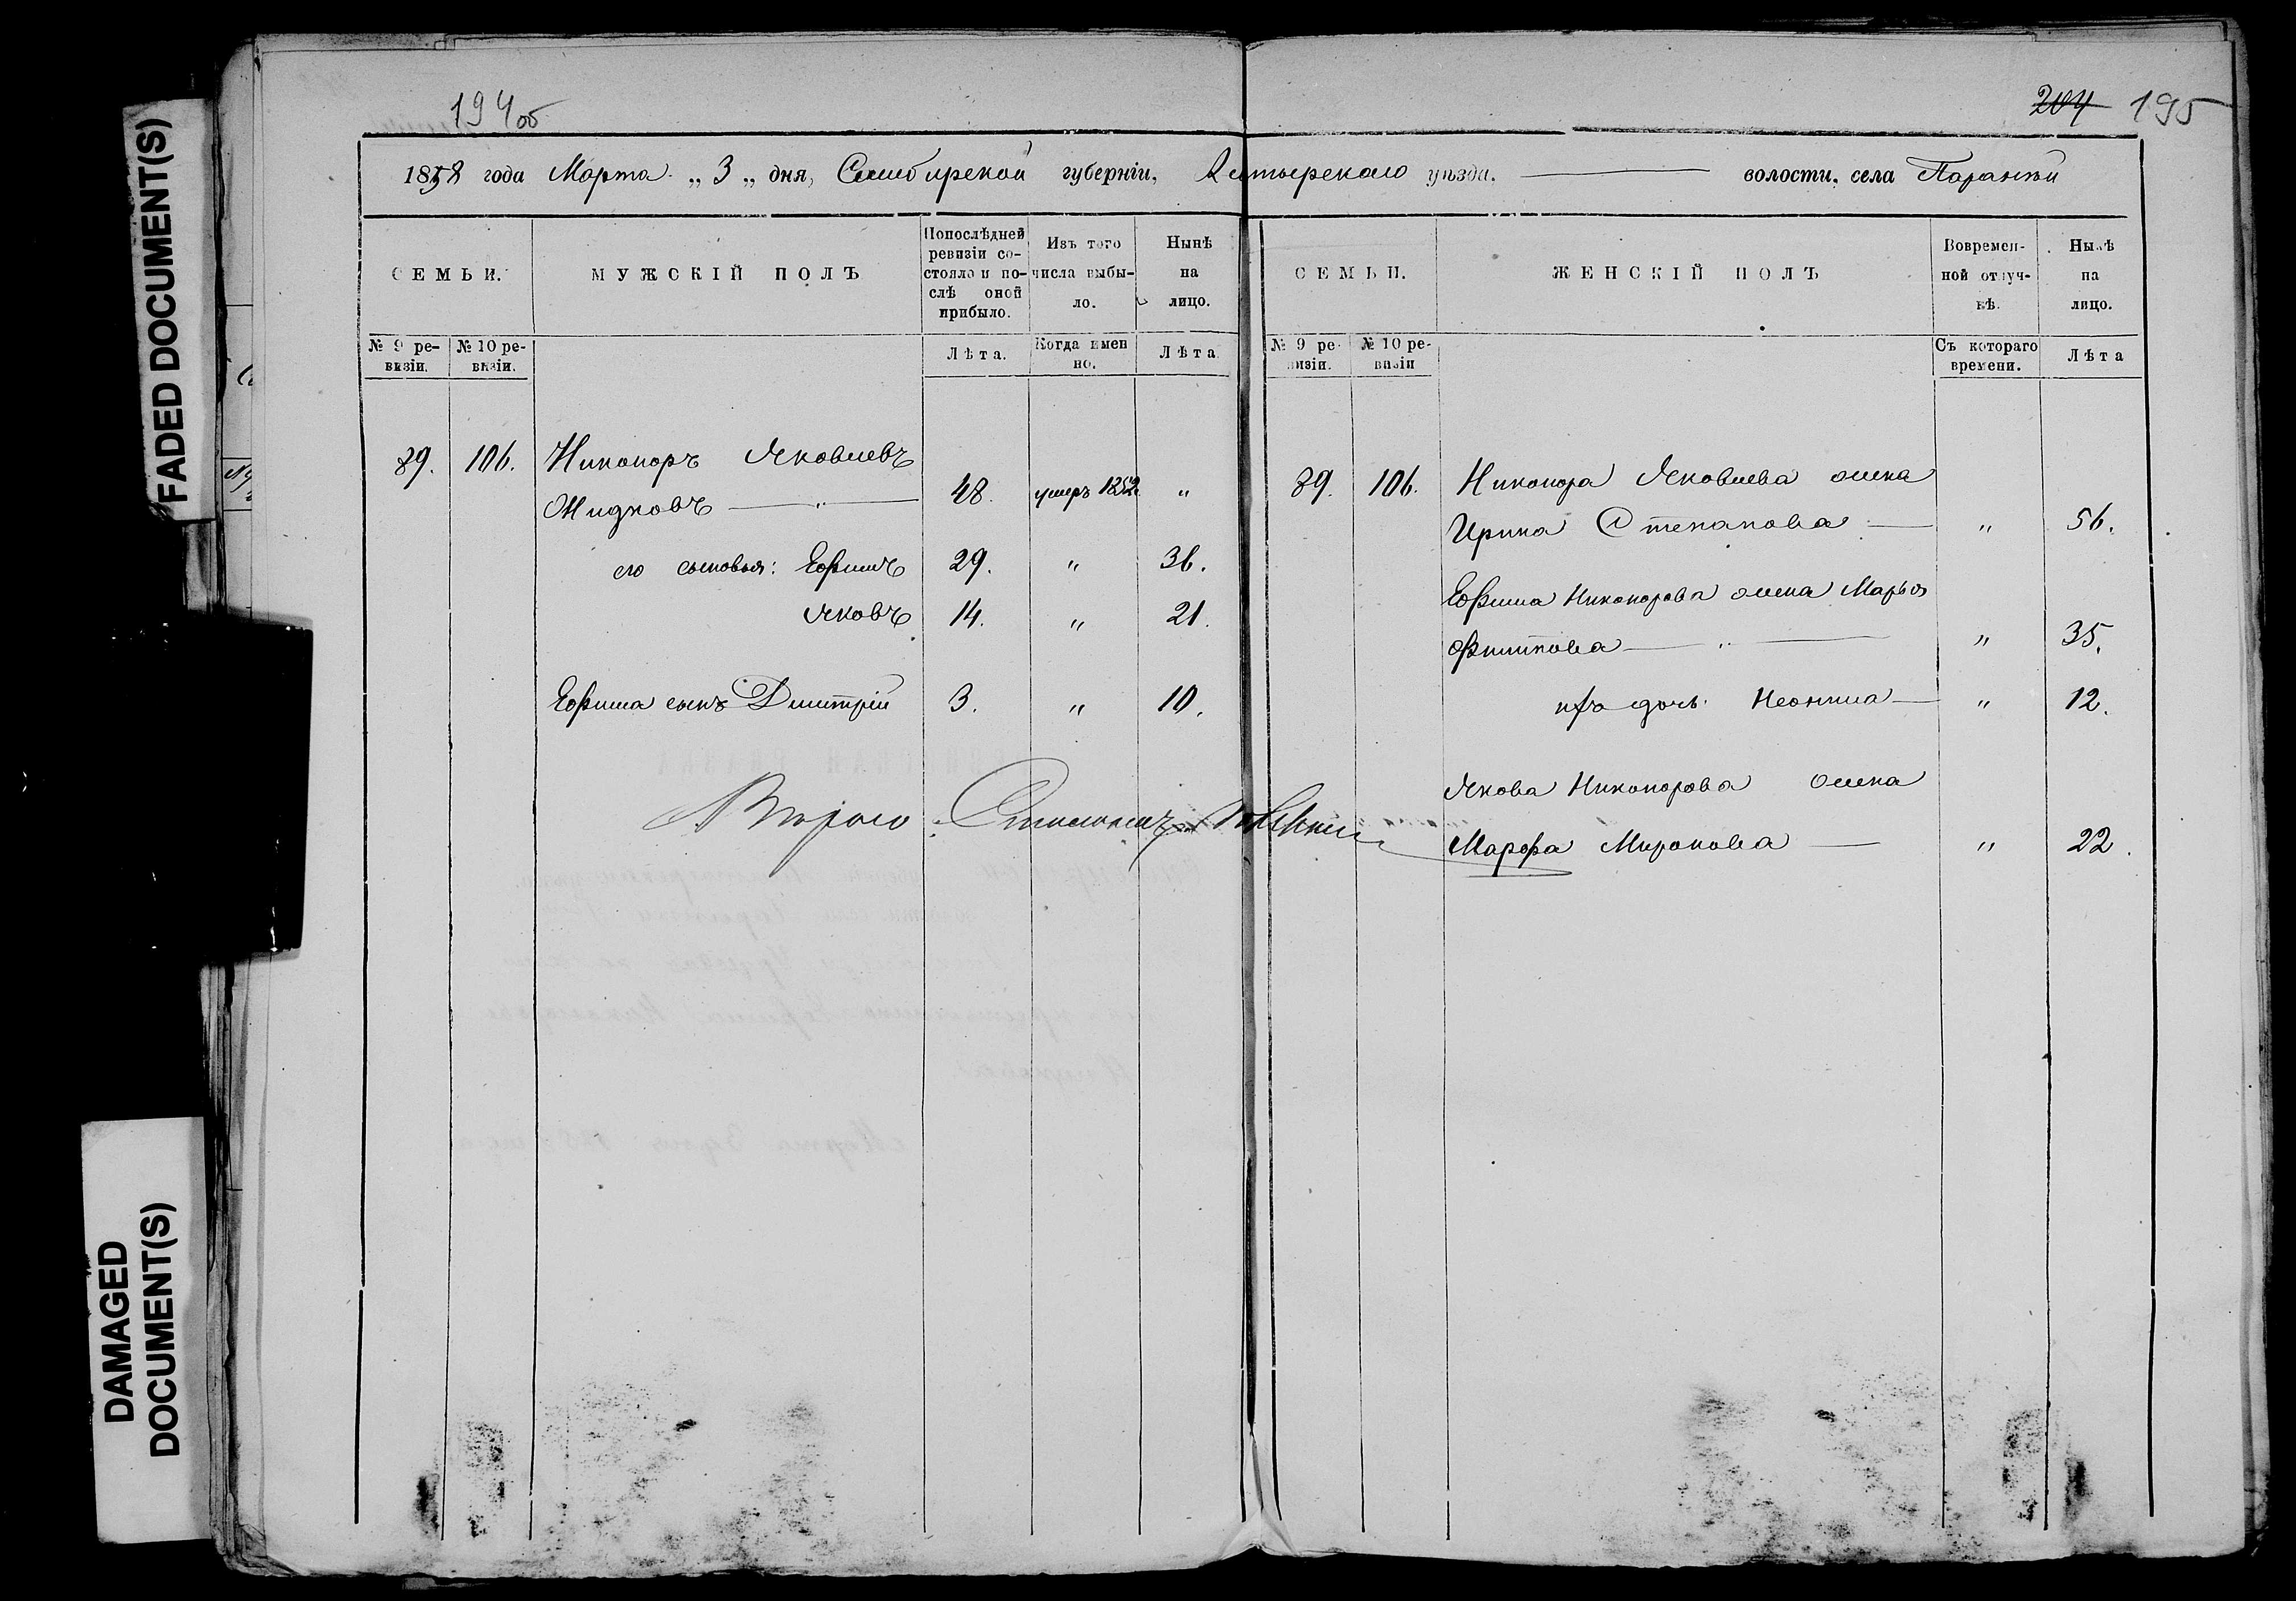 FADED DOCUMENT(S)
DAMAGED
DOCUMENT(S)
194 об
204 195
1858 года Марта „ 3 „ дня, Симбирской губерніи,
уѣзда. волости, села
СЕМЬИ.
МУЖСКІЙ ПОЛЪ
Попослѣдней ревизіи состояло и послѣ оной прибыло.
Изъ того числа выбыло.
Нынѣ на лицо.
№ 9 ревизіи.
№ 10 ревизіи.
Лѣта.
Когда именно.
Лѣта
89. 106. Никоноръ Яковлевъ
Жидковъ — „ — 48. умеръ 1852. „
его сыновья: Ефимъ 29. „ 36.
Яковъ 14. „ 21.
Ефима сынъ Дмитрій 3. „ 10.
СЕМЬИ.
ЖЕНСКІЙ ПОЛЪ
Вовременной отлучкѣ.
Нынѣ на лицо.
№ 9 ревизіи.
№ 10 ревизіи
Съ котораго времени.
Лѣта
89. 106. Никонора Яковлева жена
Ирина Степанова — „ 56.
Ефима Никонорова жена Марья
„ 35.
дочь — „ 12.
Якова Никонорова жена
Марфа Миронова — „ 22.